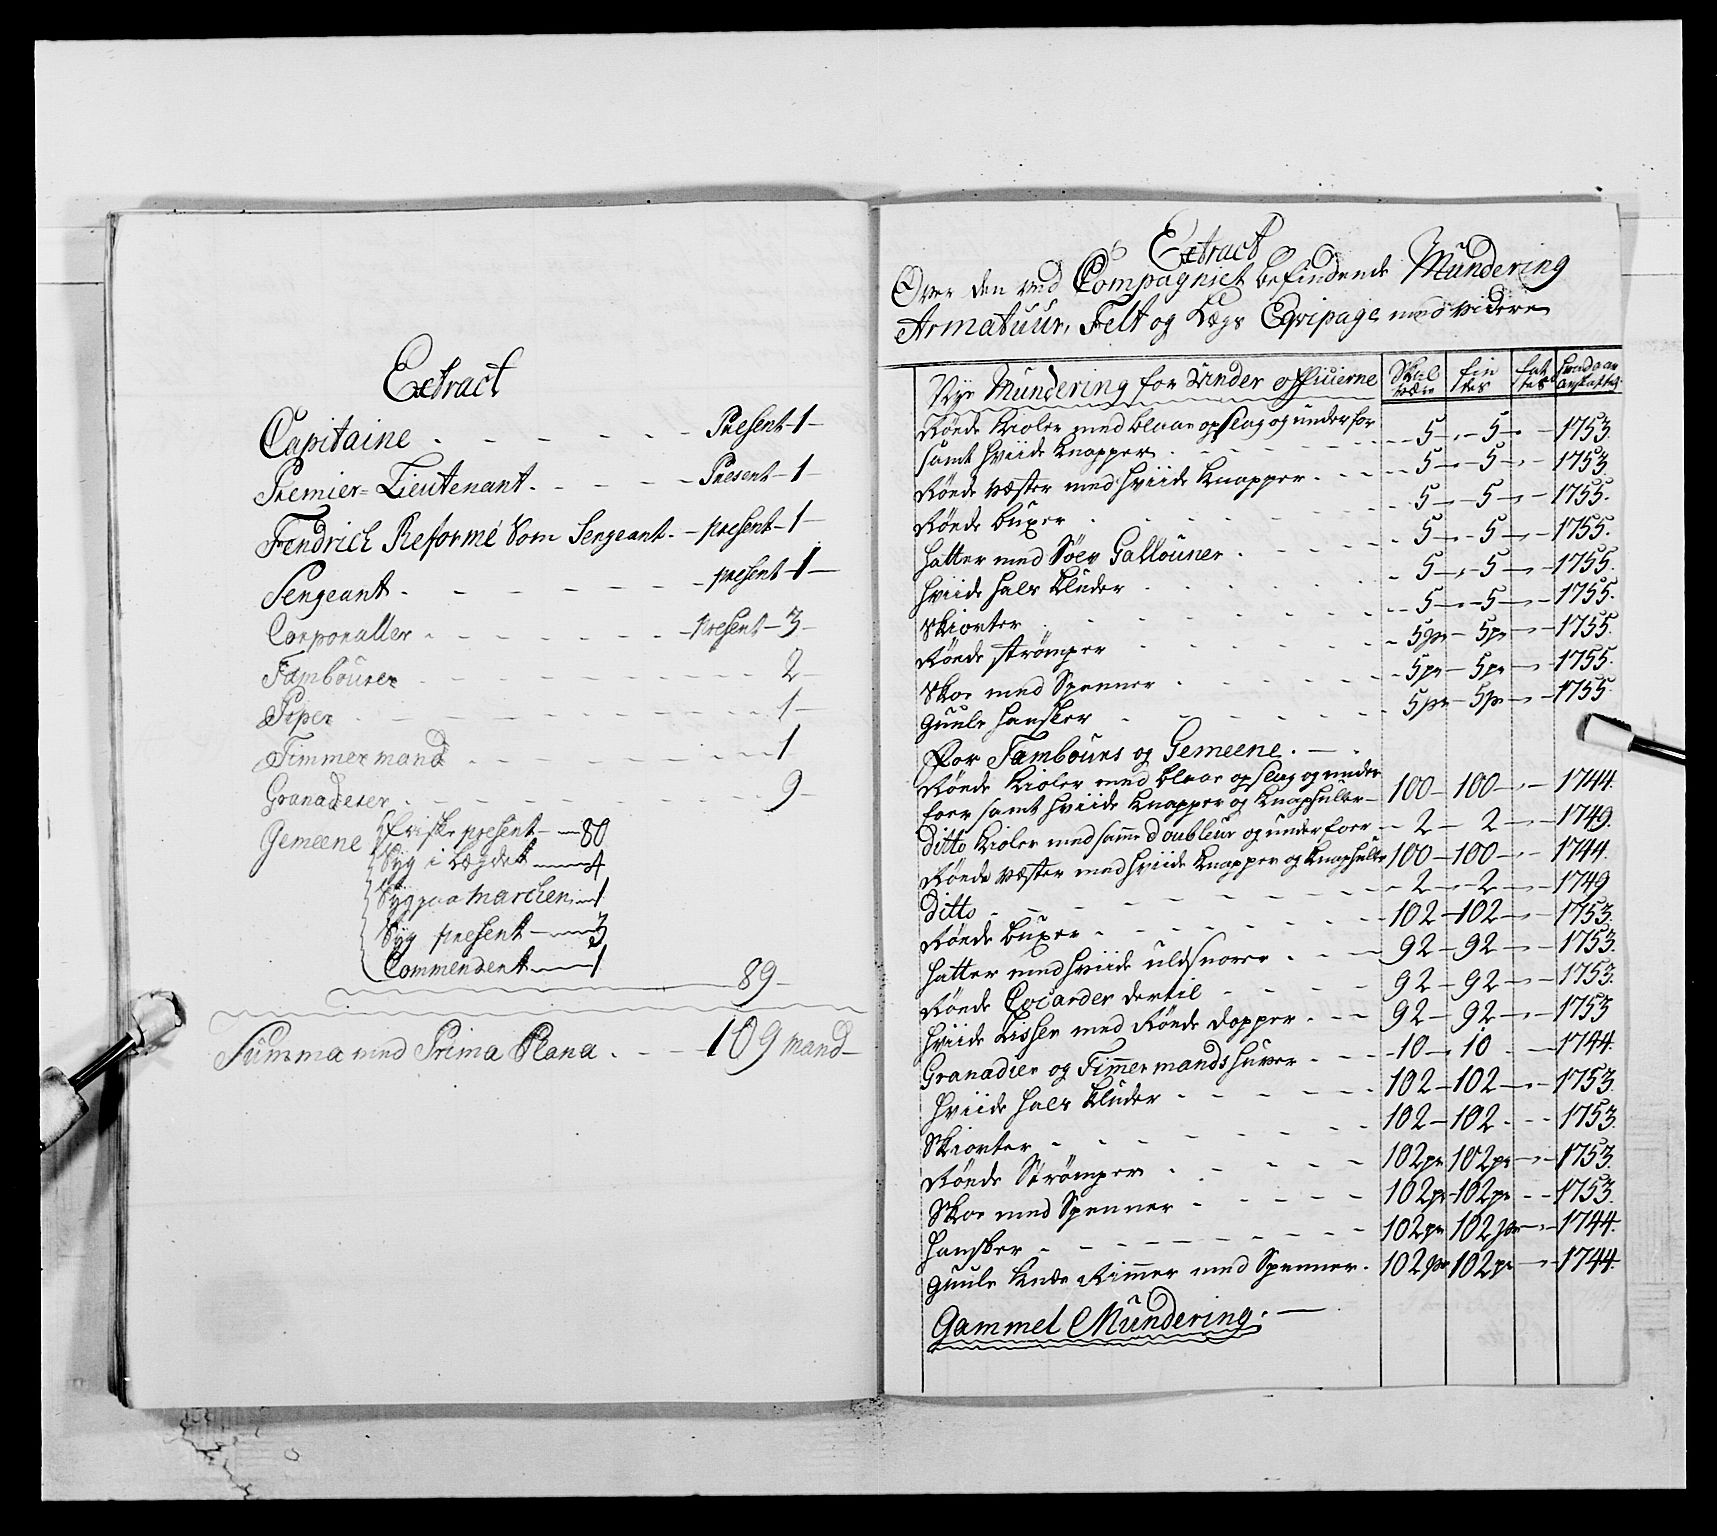 Extract
Capitaine . - - - - - - Present - 1 -
Premier = Lieutenant . - - - - Present - 1 -
Fendrich Reformé Som Sergeant. - present - 1 -
Sergeant - - - - - - present - 1 -
Corporaller - - - - - - present - 3 -
Tambourer - - - - - - 2 -
Piper - - - - - - 1 -
Timmermand - - - - - - 1
Granaderer - - - - - - 9 -
Gemeene friske present - 80
Syg i Lægdet - 4
Syg paa Marchen - 1
Syg present - 3
Commendert - 1
89 -
Summa med Prima Plana . - - - 109 mand -
Extract
Over den ved Compagniet befindende Mundering
Armatuur, Felt og Lægs Eqvipage med videre
Nye Mundering for Under officierne Skal være fin des fat tes hvad aar anskaffed
Røede Kioler med blaae opslag og under for
samt hviide Knapper . - - - 5 - 5 - 1753.
Røede Væster med hviide Knapper . - - 5 - 5 - 1753.
Røede Buxer . - - - 5 - 5 - 1755.
Hatter med Sølv Gallouner . - - - 5 - 5 - 1755.
Hviide Hals Kluder - - - 5 - 5 - 1755.
Skiorter - - - 5 - 5 - 1755.
Røede strømper - - - 5pr - 5pr - 1755.
Skoe med Spenner - - - 5pr - 5pr - 1755.
Guule Handsker - - - 5pr - 5pr - 1755.
For Tambours og Gemeene . -
Røede Kioler med blaae opslag og under
foer samt hviide Knapper og Knaphuller - 100 - 100 - 1744.
Ditto Kioler med samme Doubleur og under foer - 2 - 2 - 1749.
Røede Væster med hviide Knapper og Knaphuller 100 - 100 - 1744.
Ditto - - - 2 - 2 - 1749
Røede Buxer - - - 102 - 102 - 1753.
Hatter med hviide uldsnorer . - - 92 - 92 - 1753.
Røede Cocarder dertil - - - 92 - 92 - 1753.
Hviide Lidser med Røede Dopper . - - 92 - 92 - 1753
Granadier og Timmermands Huver - - - 10 - 10 - 1744.
Hviide Hals Kluder - - - 102 - 102 - 1753.
Skiorter - - - 102 - 102 - 1753.
Røede Strømper - - - 102pr 102pr - 1753.
Skoe med Spenner - - - 102pr - 102pr - 1753.
Handsker - - - 102pr 102pr - 1744.
Guule Knæe Rimmer med Spenner . 102pr 102pr - 1744.
Gammel Mundering . -